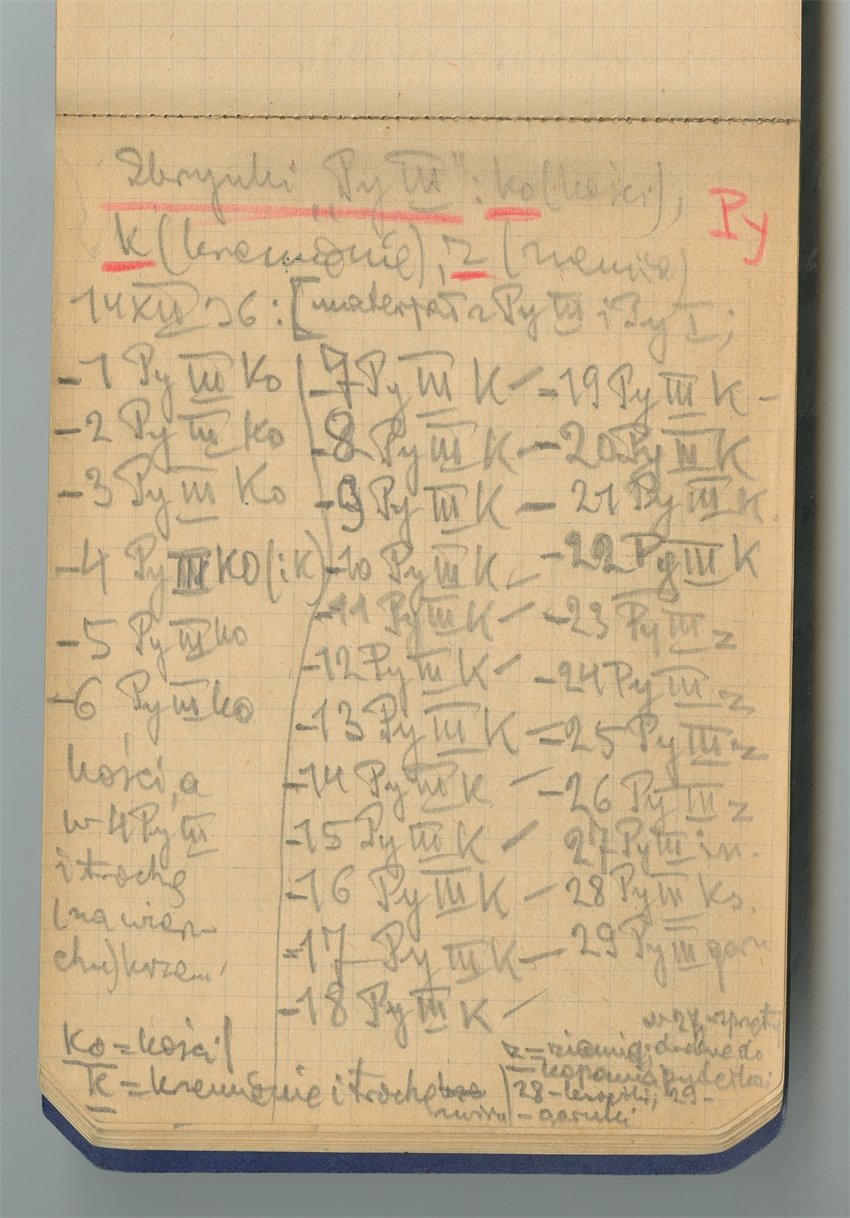 Skrzynki "Py III": ko (kości),
Py
k (krzemienie), z (ziemia)
14 XII 36: [materjał z Py III i Py I;
-1 Py III Ko
-2 Py III ko
-3 Py III Ko
-4 Py III KO (i K)
-5 Py III ko
-6 Py III ko
kości, a
w 4 Py III
i trochę
(na wierz-
chu) krzem.
-7 Py III K -
-8 Py III K -
-9 Py III K -
-10 Py III K -
-11 Py III K -
-12 Py III K -
-13 Py III K -
-14 Py III K -
-15 Py III K -
-16 Py III K -
-17 Py III K -
-18 Py III K -
-19 Py III K -
-20 Py III K
-21 Py III K.
-22 Py III K
-23 Py III z
-24 Py III z
-25 Py III z
-26 Py III z
27 Py III in.
28 Py III Ks.
29 Py III garn
ko = kości
k = krzemienie i trochę
żwiru
w 27 sprzęty
z = ziemia; drobne do
kopania pudełka;
28 - książki; 29 -
- garnki